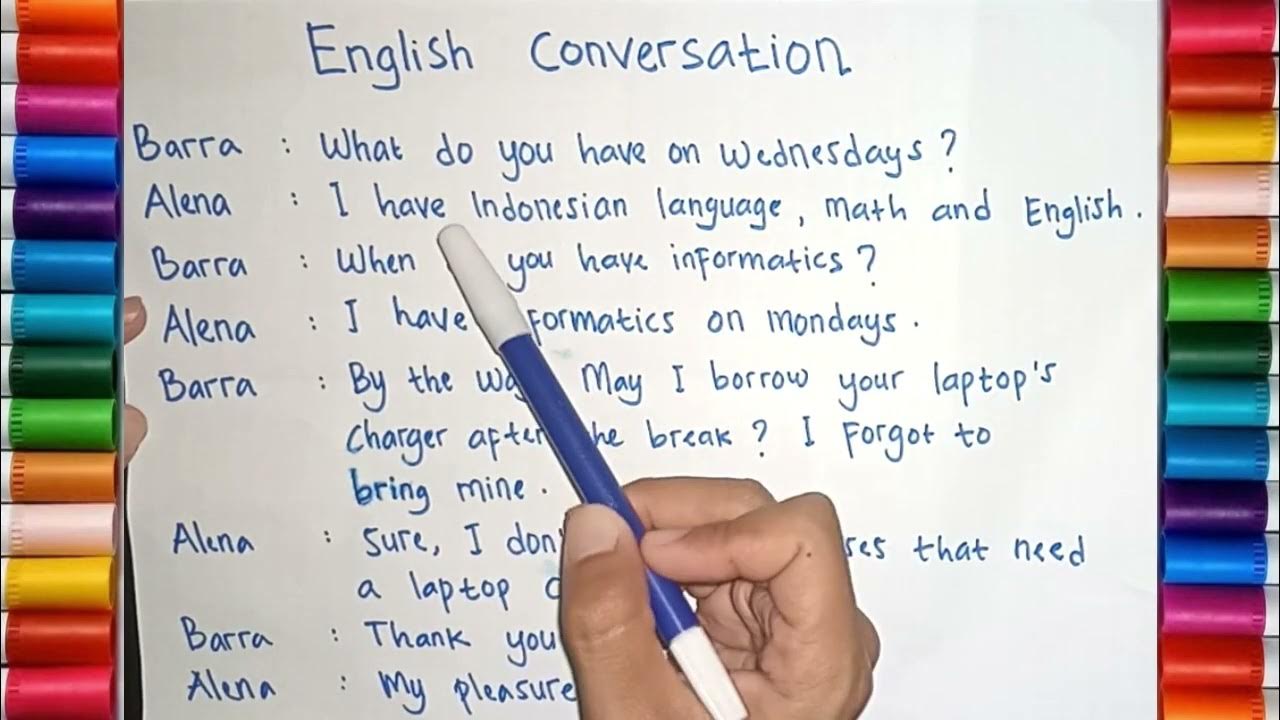 English Conversation
Barra : What do you have on Wednesdays ?
Alena : I have Indonesian language, math and English.
Barra : When you have informatics ?
Alena : I have formatics on mondays.
Barra : By the May I borrow your laptop's
charger after the break ? I forgot to
bring mine.
Alena : Sure, I that need
a laptop
Barra : Thank you
Alena : My pleasure